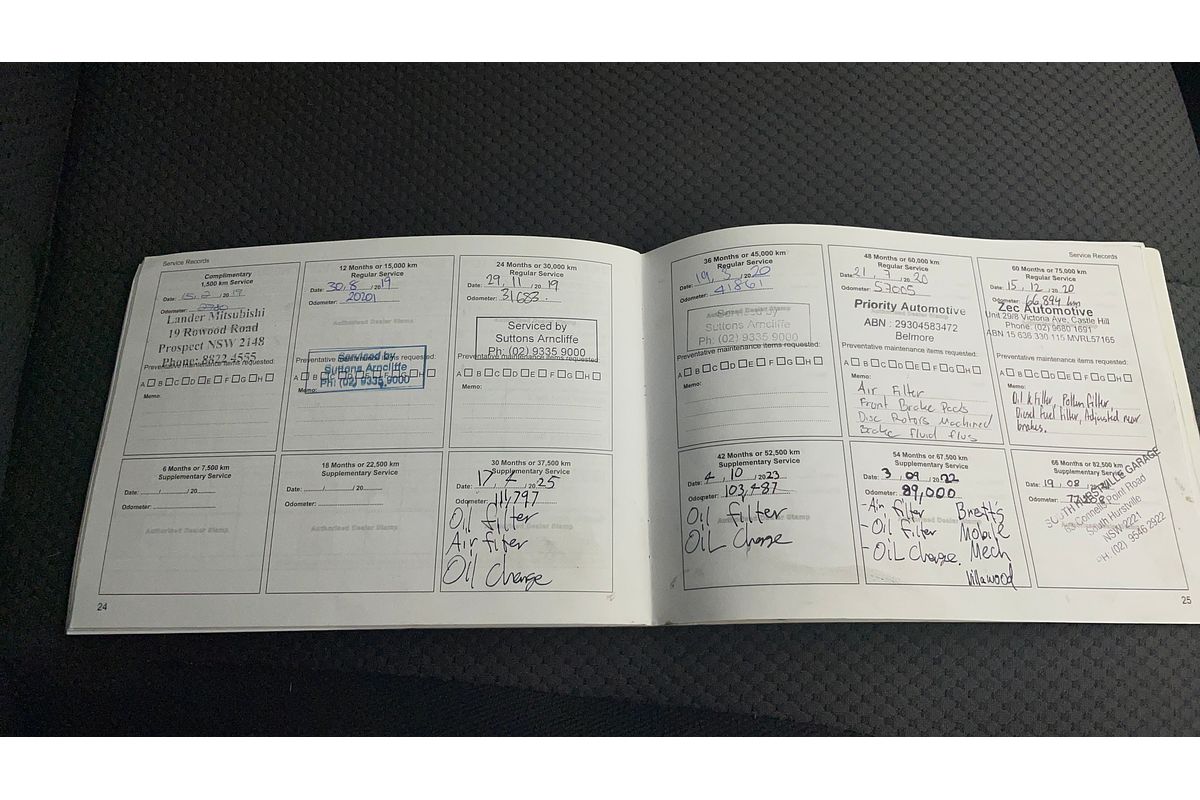 Service Records
Complimentary
1,500 km Service
Date: 15.2./2019
Odometer:
Lander Mitsubishi
19 Rowood Road
Prospect NSW 2148
Phone: 8822 4555
Preventative maintenance items requested:
A B C D E F G H
Memo:
12 Months or 15,000 km
Regular Service
Date: 30.8./2019
Odometer: 20201
Authorised Dealer Stamp
Serviced by
Suttons Arncliffe
Ph: (02) 9335 9000
Preventative maintenance items requested:
A B C D E F G H
Memo:
24 Months or 30,000 km
Regular Service
Date: 29.11./2019
Odometer: 31683
Serviced by
Suttons Arncliffe
Ph: (02) 9335 9000
Preventative maintenance items requested:
A B C D E F G H
Memo:
6 Months or 7,500 km
Supplementary Service
Date: / /20
Odometer:
Authorised Dealer Stamp
18 Months or 22,500 km
Supplementary Service
Date: / /20
Odometer:
Authorised Dealer Stamp
30 Months or 37,500 km
Supplementary Service
Date: 17/4/2025
Odometer: 111,797
Oil filter
Air filter
Oil Change
24
Service Records
36 Months or 45,000 km
Regular Service
Date: 19.3./2020
Odometer: 41861
Authorised Dealer Stamp
Serviced by
Suttons Arncliffe
Ph: (02) 9335 9000
Preventative maintenance items requested:
A B C D E F G H
Memo:
48 Months or 60,000 km
Regular Service
Date: 21.7./2020
Odometer: 57005
Priority Automotive
ABN : 29304583472
Belmore
Preventative maintenance items requested:
A B C D E F G H
Memo:
Air Filter
Front Brake Pads
Disc Rotors Machined
Brake Fluid flus
60 Months or 75,000 km
Regular Service
Date: 15.12./2020
Odometer: 66,894 km
Zec Automotive
Unit 29/8 Victoria Ave, Castle Hill
Phone: (02) 9680 1691
ABN 15 636 330 115 MVRL57165
Preventative maintenance items requested:
A B C D E F G H
Memo:
Oil & Filter, Pollen filter
Diesel Fuel filter, Adjusted rear
brakes.
42 Months or 52,500 km
Supplementary Service
Date: 4/10/2023
Odometer: 103,487
Authorised Dealer Stamp
Oil filter
OiL Change
54 Months or 67,500 km
Supplementary Service
Date: 3/09/2022
Odometer: 89,000
- Air filter Brett's
- Oil filter Mobile
- OiL Change. Mech
Villawood
66 Months or 82,500 km
Supplementary Service
Date: 19/08/20
Odometer:
SOUTH HURSTVILLE GARAGE
63 Connells Point Road
South Hurstville
NSW 2221
PH: (02) 9546 2922
25